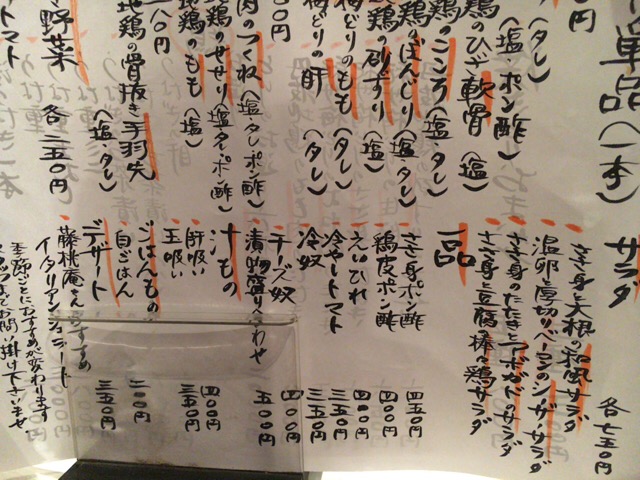 単品(一本)
(タレ)
(塩・ポン酢)
鶏のひざ軟骨(塩)
鶏のハラミ(塩・タレ)
鶏のぼんじり(塩・タレ)
鶏の砂ずり(塩)
梅どりのもも(タレ)
梅どりの肝(タレ)
肉のつくね(塩・タレ・ポン酢)
鶏のせせり(塩・タレ・ポン酢)
地鶏のもも(塩)
一八〇円
地鶏の骨抜き手羽先(塩・タレ)
野菜 各二五〇円
トマト
サラダ 各七五〇円
ささ身と大根の和風サラダ
温卵と厚切りベーコンのシーザーサラダ
ささ身のたたきとアボガドのサラダ
ささ身と豆腐の棒々鶏サラダ
一品
ささ身ポン酢 四五〇円
鶏皮ポン酢 四〇〇円
えいひれ 四〇〇円
冷やしトマト 三五〇円
冷奴 三五〇円
チーズ奴 四〇〇円
漬物盛り合わせ 五〇〇円
汁もの
肝吸い 四〇〇円
玉吸い 三五〇円
ごはんもの
白ごはん 二〇〇円
デザート 三五〇円
藤桃庵さんおすすめ
イタリアンジェラート
季節ごとにおすすめが変わります
スタッフまでお問い掛け下さいませ